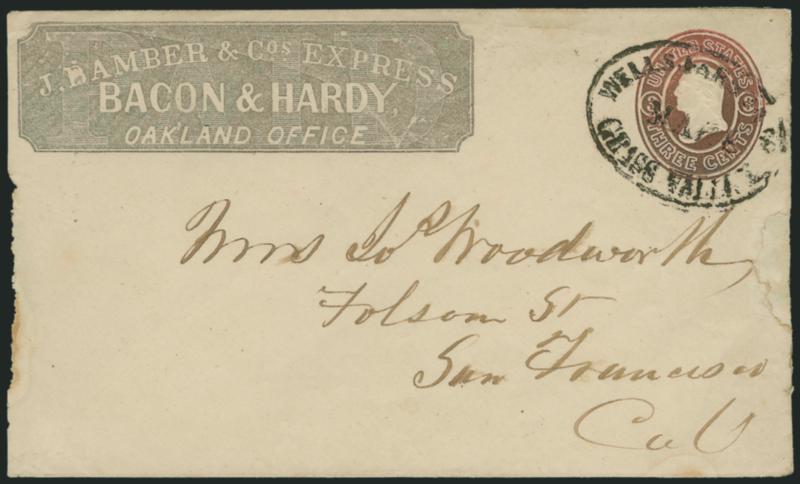 J. BAMBER & COS EXPRESS
BACON & HARDY,
OAKLAND OFFICE
UNITED STATES
THREE CENTS
3 3
WELLS FARGO
GRASS VALLEY
Mrs Jos Woodworth
Folsom St
San Francisco
Cal